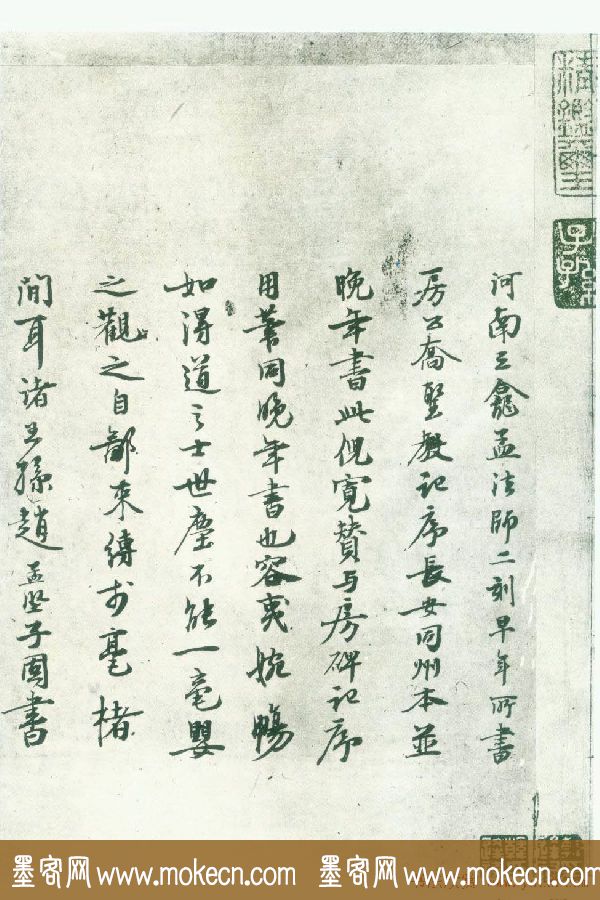 精鑑璽
河南三龕孟法師二刻早年所書
房公喬聖教記序長安同州本並
晚年書此倪寬贊与房碑記序
用筆同晚年書也容夷婉暢
如得道之士世塵不能一毫嬰
之觀之自鄙束縛於毫楮
間耳諸王孫趙孟堅子固書
墨客网 www.mokecn.com 墨客网 www.mokecn.com